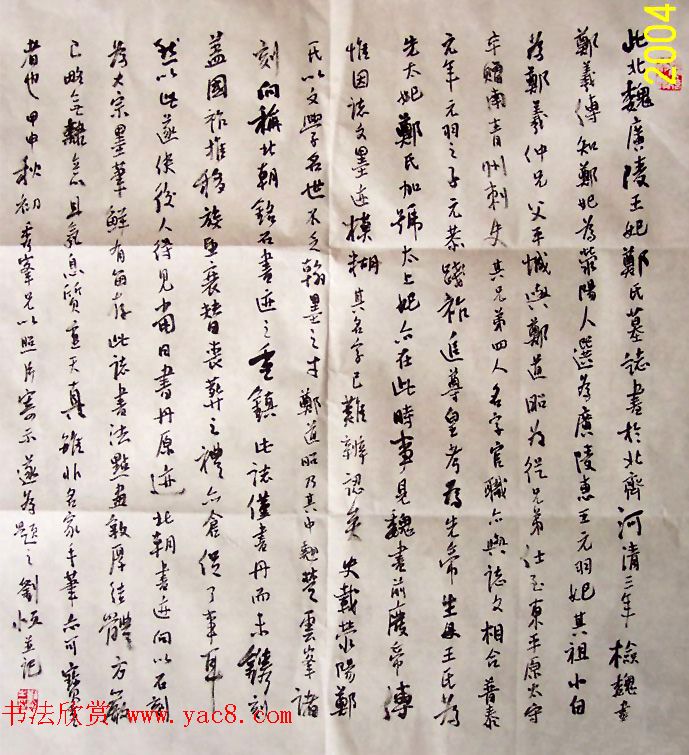 此北魏廣陵王妃鄭氏墓誌書於北齊河清三年檢魏書
鄭羲傳知鄭妃為滎陽人選為廣陵惠王元羽妃其祖小白
為鄭羲仲兄父平城與鄭道昭為從兄弟仕至東平原太守
卒贈南青州刺史其兄弟四人名字官職亦與誌文相合普泰
元年元羽之子元恭踐祚追尊皇考為先帝生母王氏為
先太妃鄭氏加號太上妃亦在此時事見魏書前廢帝傳
惟因誌文墨迹模糊其名字已難辨認矣史載滎陽鄭
氏以文學名世不乏翰墨之才鄭道昭乃其中翹楚雲峯諸
刻向稱北朝銘石書迹之重鎮此誌僅書丹而未鐫刻
蓋國祚推移族望衰替喪葬之禮亦倉促了事耳
然以此遂使後人得見當日書丹原迹北朝書迹向以石刻
為大宗墨筆鮮有留存此誌書法點畫敦厚結體方嚴
已略無隸意且氣息質直天真雖非名家手筆亦可寶愛
者也甲申秋初秀峯兄以照片寄示遂為題之劉恒并記
2004
书法欣赏 www.yac8.com